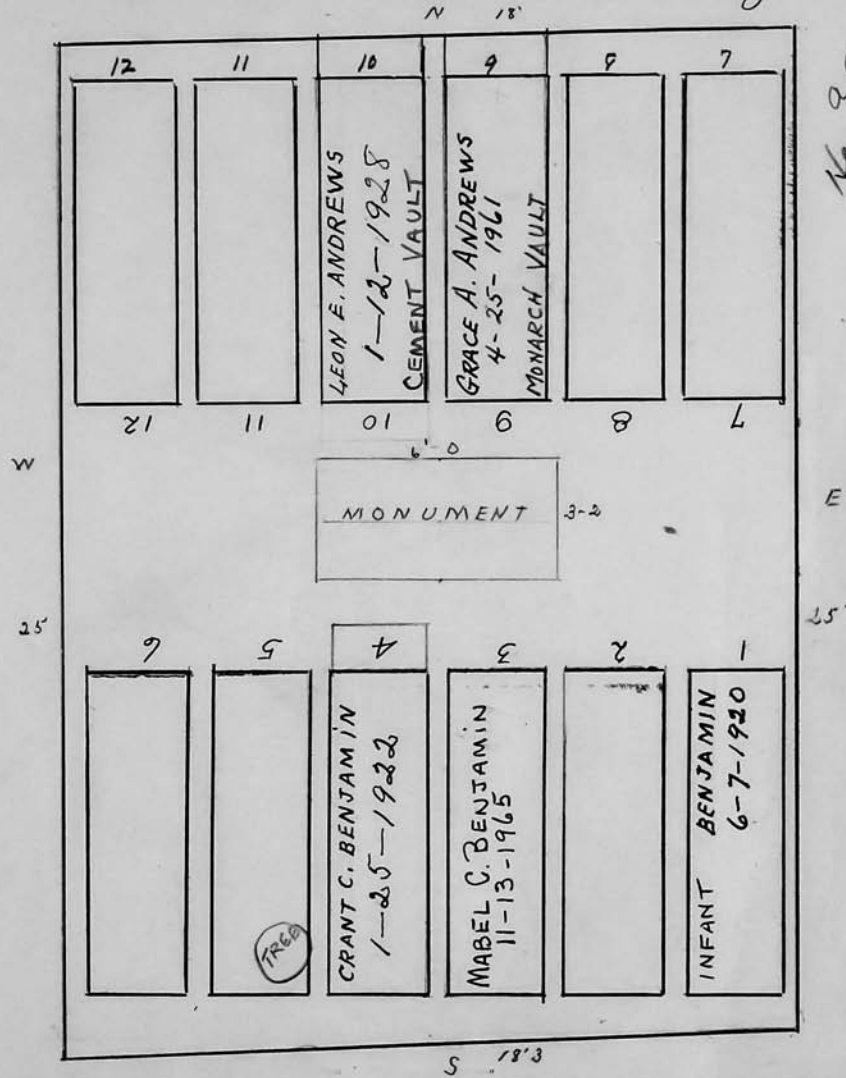 N 18'
12 11 10 9 8 7
LEON E. ANDREWS
1-12-1928
CEMENT VAULT
GRACE A. ANDREWS
4-25-1961
MONARCH VAULT
12 11 10 9 8 7
W
6'-0
MONUMENT
3-2
E
25'
25'
6 5 4 3 2 1
CRANT C. BENJAMIN
1-25-1922
MABEL C. BENJAMIN
11-13-1965
INFANT BENJAMIN
6-7-1920
TREE
S 18'3